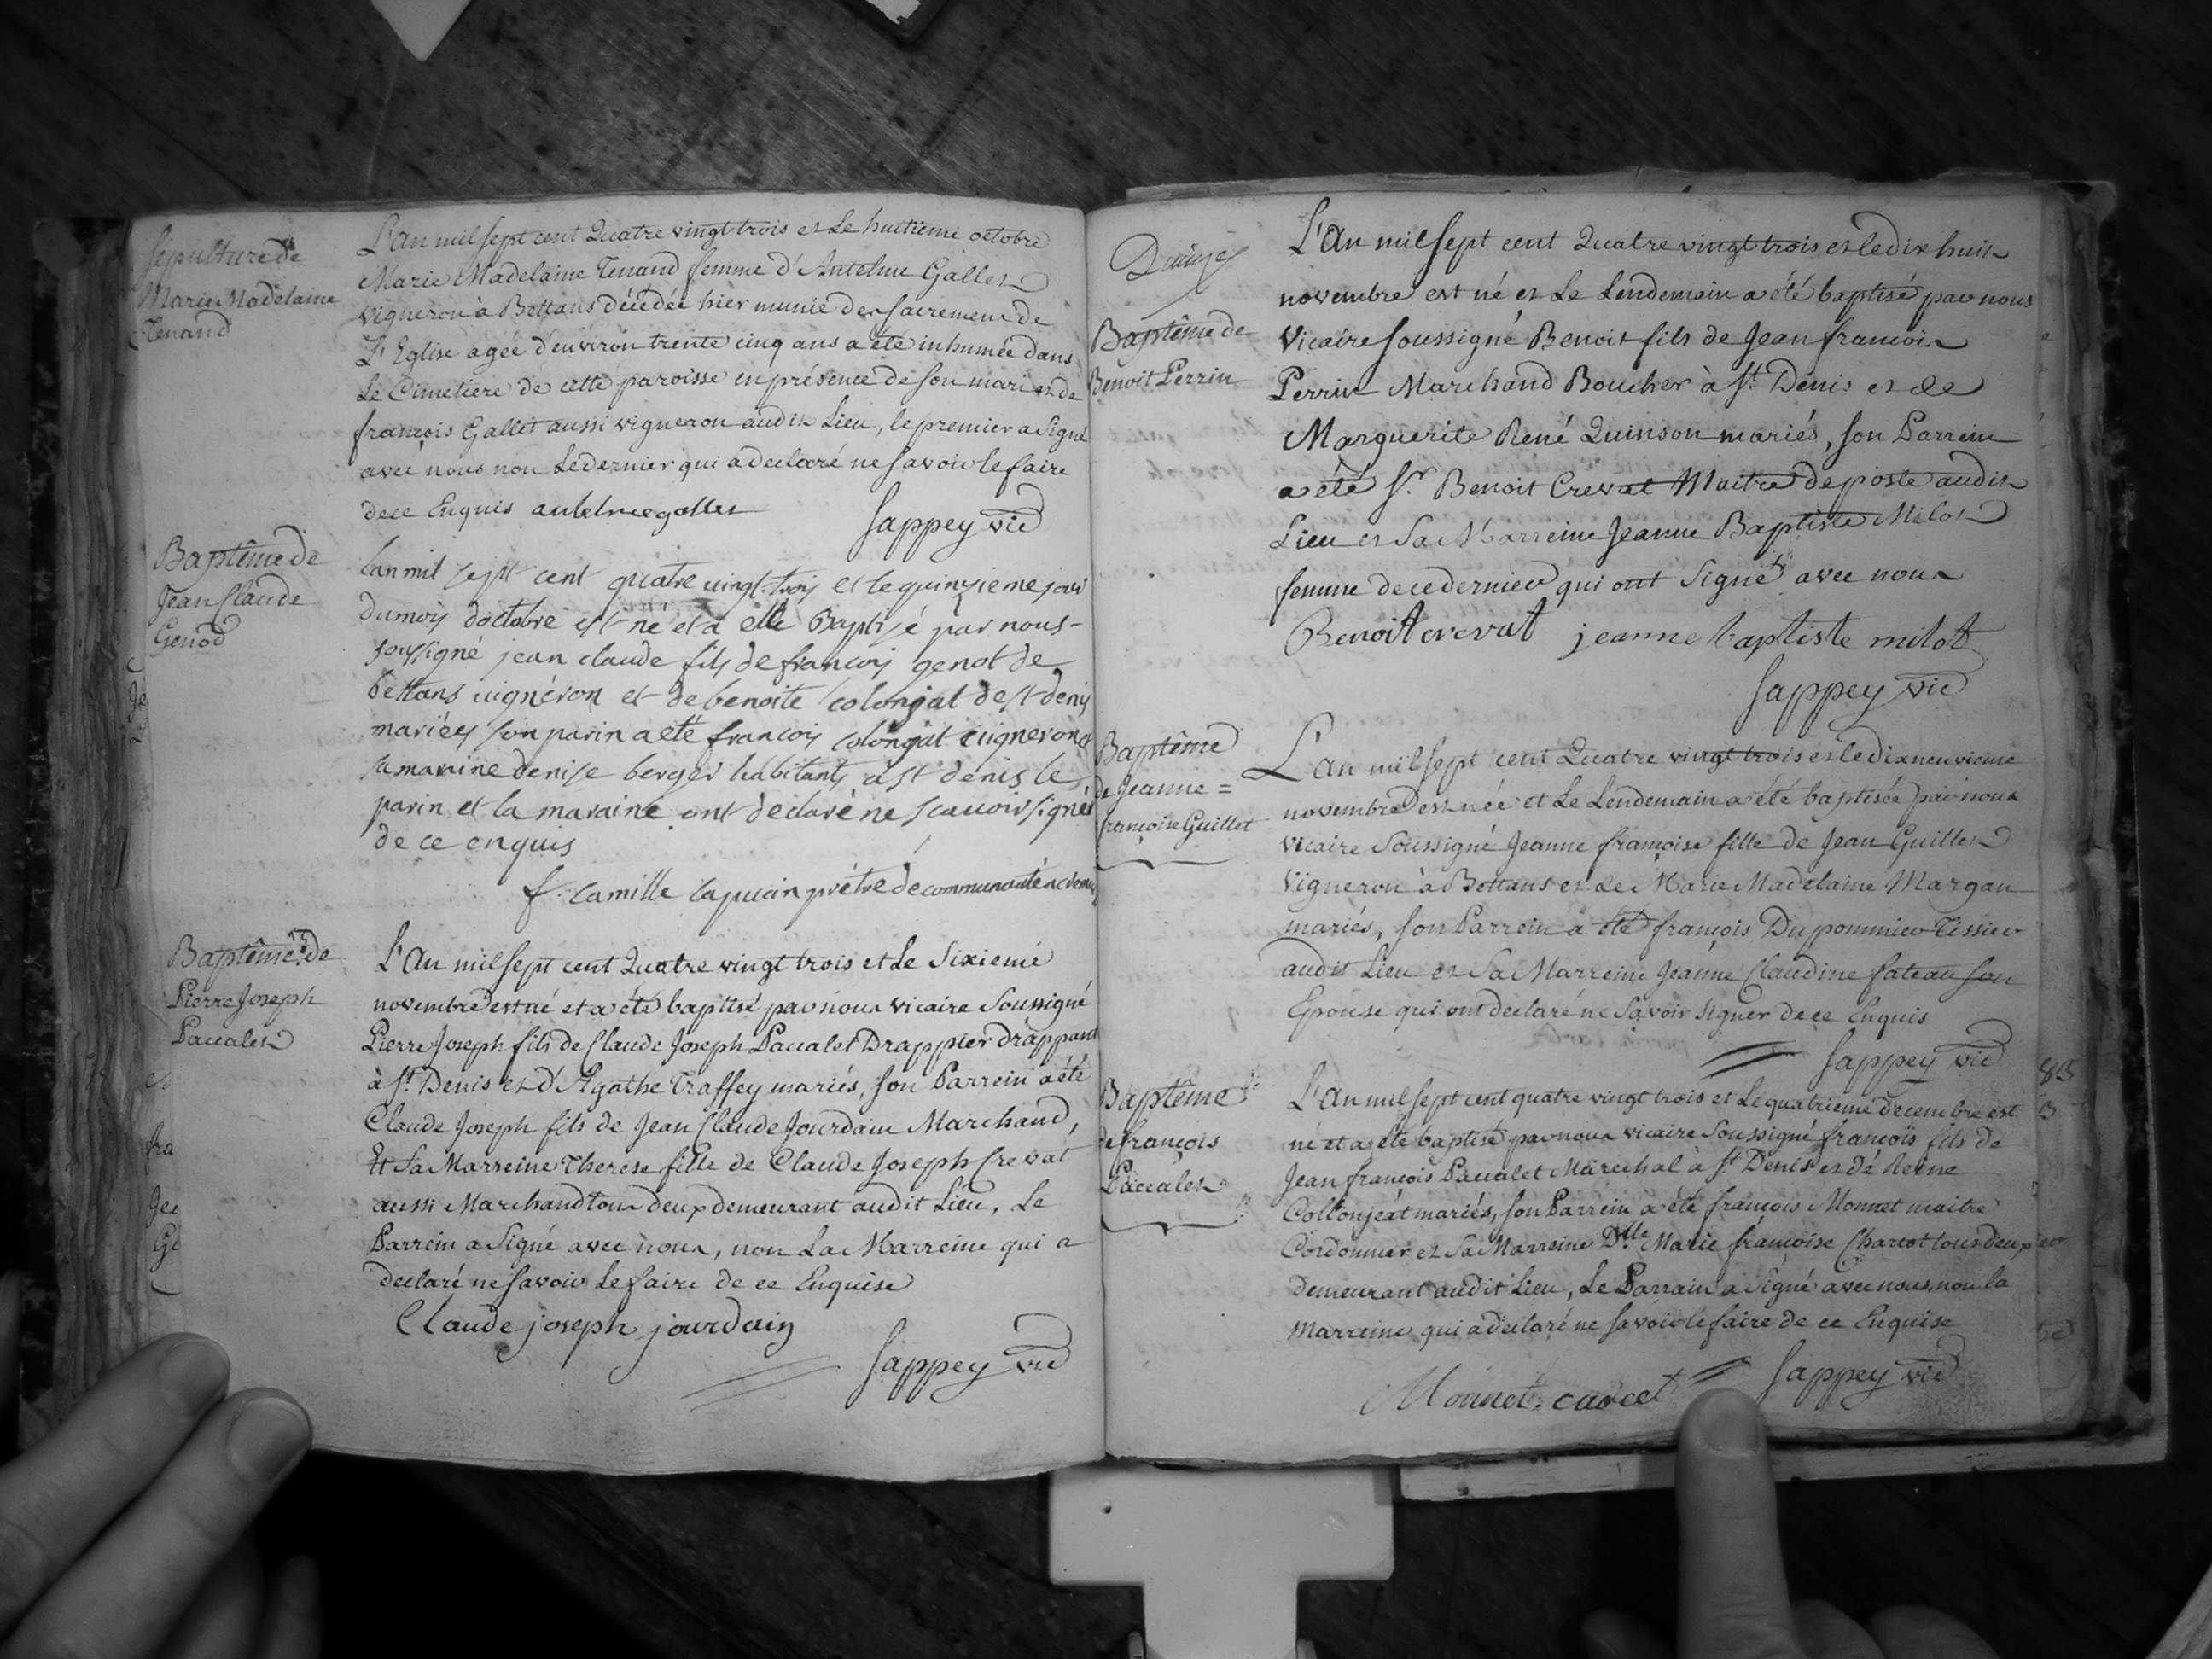 Sepulture de
Marie Madelaine
Tenand
L'An mil sept cent Quatre vingt trois et Le huitieme octobre
Marie Madelaine Tenand femme d'Antelme Gallet
vigneron à Bettans décédée hier munie des sacremens de
L'Eglise agée d'environ trente cinq ans a été inhumée dans
Le Cimetiere de cette paroisse en présence de son mari et de
françois Gallet aussi vigneron audit Lieu, le premier a signé
avec nous non Le dernier qui a declaré ne savoir le faire
de ce Enquis antelme gallet
Sappey vic
Baptême de
Jean Claude
Genod
lan mil sept cent quatre vingt trois et le quinsieme jour
du mois doctobre est né et a etté Baptisé par nous
soussigné jean claude fils de francois genot de
bettans vigneron et de benoite colonjat de st denis
mariés son parin a eté francois colonjat vigneron et
sa maraine denise berger habitants a st denis le
parin et la maraine ont declaré ne scauoir signés
de ce enquis
f. camille capucin prétre de communauté
Baptême de
Pierre Joseph
Paccalet
L'An mil sept cent Quatre vingt trois et Le Sixieme
novembre est né et a été baptisé par nous vicaire Soussigné
Pierre Joseph fils de Claude Joseph Paccalet Drappier drappant
à St. Denis et d'Agathe Traffey mariés, son Parrein a été
Claude Joseph fils de Jean Claude Jourdain Marchand,
Et Sa Marreine Therese fille de Claude Joseph Crevat
aussi Marchand tous deux demeurant audit Lieu, Le
Parrein a Signé avec nous, non La Marreine qui a
declaré ne savoir Le faire de ce Enquise
Claude joseph jourdain
Sappey vic
Baptême de
Benoit Perrin
L'An mil sept cent Quatre vingt trois et le dix huit
novembre est né et Le Lendemain a été baptisé par nous
Vicaire soussigné Benoit fils de Jean francois
Perrin Marchand Boucher à St Denis et de
Marguerite René Quinson mariés, son Parrein
a été Sr. Benoit Crevat Maitre de poste audit
Lieu et Sa Marreine Jeanne Baptiste Milot
femme de ce dernier qui ont Signé avec nous
Benoit crevat jeanne baptiste milot
Sappey vic
Baptême
de Jeanne =
françoise Guillet
L'An mil sept cent Quatre vingt trois et le dixneuvieme
novembre est née et Le Lendemain a été baptisée par nous
vicaire Soussigné Jeanne françoise fille de Jean Guillet
Vigneron à Bettans et de Marie Madelaine Margan
mariés, son Parrein a été françois Dupommier Tissier
audit Lieu et Sa Marreine Jeanne Claudine fateau son
Epouse qui ont declaré ne Savoir signer de ce Enquis
Sappey vic
Baptême
de françois
Paccalet
L'An mil sept cent quatre vingt trois et Le quatrieme decembre est
né et a été baptisé par nous vicaire Soussigné françois fils de
Jean francois Paccalet Marechal à St Denis et de Reine
Collonjeat mariés, son Parrein a été francois Monnet maitre
Cordonnier et Sa Marreine Dlle Marie françoise Charcot tous deux
demeurant audit Lieu, Le Parrain a Signé avec nous, non la
marreine qui a declaré ne savoir le faire de ce Enquise
Monnet Sappey vic
83